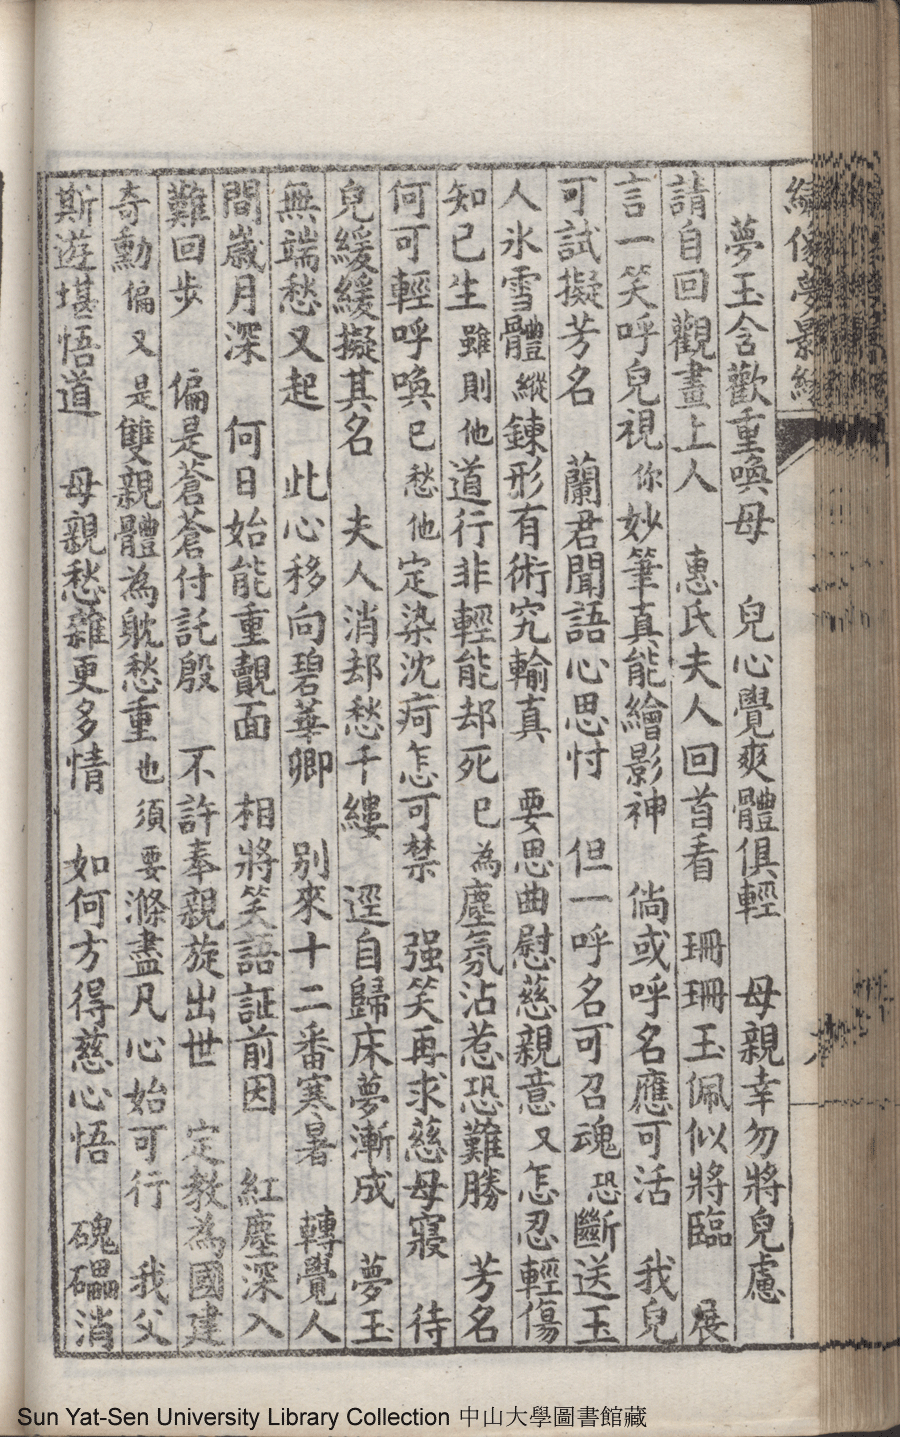 繡像夢影緣
夢玉含歡重喚母　兒心覺爽體俱輕　母親幸勿將兒慮
請自回觀畫上人　惠氏夫人回首看　珊珊玉佩似將臨　展
言一笑呼兒視　你妙筆真能繪影神　倘或呼名應可活　我兒
可試擬芳名　蘭君聞語心思忖　但一呼名可召魂　恐斷送玉
人氷雪體　縱鍊形有術究輸真　要思曲慰慈親意　又怎忍輕傷
知已生　雖則他道行非輕能却死　已為塵氛沾惹恐難勝　芳名
何可輕呼喚　已愁他定染沈疴怎可禁　强笑再求慈母寢　待
兒緩緩擬其名　夫人消却愁千縷　逕自歸床夢漸成　夢玉
無端愁又起　此心移向碧華卿　別來十二番寒暑　轉覺人
間歲月深　何日始能重覿面　相將笑語証前因　紅塵深入
難回步　偏是蒼蒼付託殷　不許奉親旋出世　定教為國建
奇勳　偏又是雙親體為躭愁重　也須要滌盡凡心始可行　我父
斯遊堪悟道　母親愁雜更多情　如何方得慈心悟　磈礧消
Sun Yat-Sen University Library Collection 中山大學圖書館藏